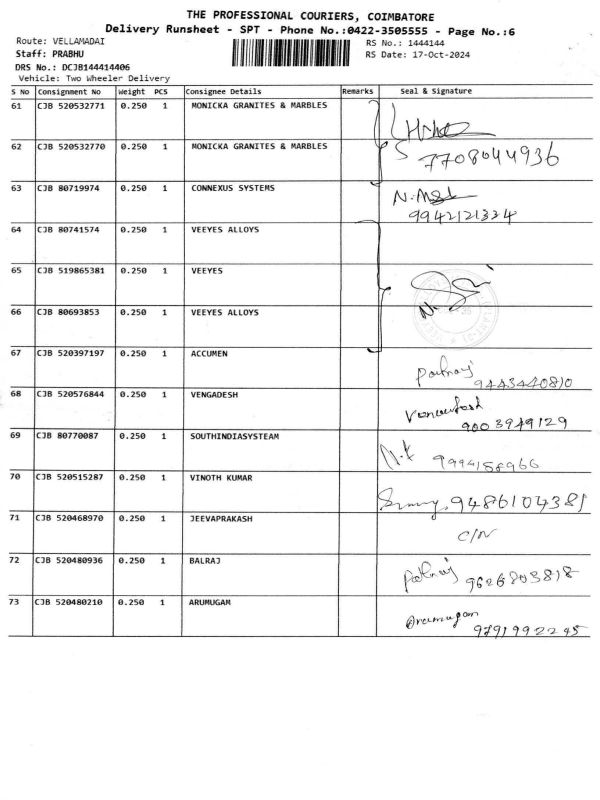 THE PROFESSIONAL COURIERS, COIMBATORE
Delivery Runsheet - SPT - Phone No.:0422-3505555 - Page No.:6
Route: VELLAMADAI
RS No.: 1444144
Staff: PRABHU
RS Date: 17-Oct-2024
DRS No.: DCJB144414406
Vehicle: Two Wheeler Delivery
S No Consignment No Weight PCS Consignee Details Remarks Seal & Signature
61 CJB 520532771 0.250 1 MONICKA GRANITES & MARBLES
62 CJB 520532770 0.250 1 MONICKA GRANITES & MARBLES 7708044936
63 CJB 80719974 0.250 1 CONNEXUS SYSTEMS
9942121334
64 CJB 80741574 0.250 1 VEEYES ALLOYS
65 CJB 519865381 0.250 1 VEEYES
66 CJB 80693853 0.250 1 VEEYES ALLOYS
67 CJB 520397197 0.250 1 ACCUMEN
9443440810
68 CJB 520576844 0.250 1 VENGADESH
9003949129
69 CJB 80770087 0.250 1 SOUTHINDIASYSTEAM
9994158966
70 CJB 520515287 0.250 1 VINOTH KUMAR 9486104381
71 CJB 520468970 0.250 1 JEEVAPRAKASH C/N
72 CJB 520480936 0.250 1 BALRAJ 9626803818
73 CJB 520480210 0.250 1 ARUMUGAM Arumugam
9791992245